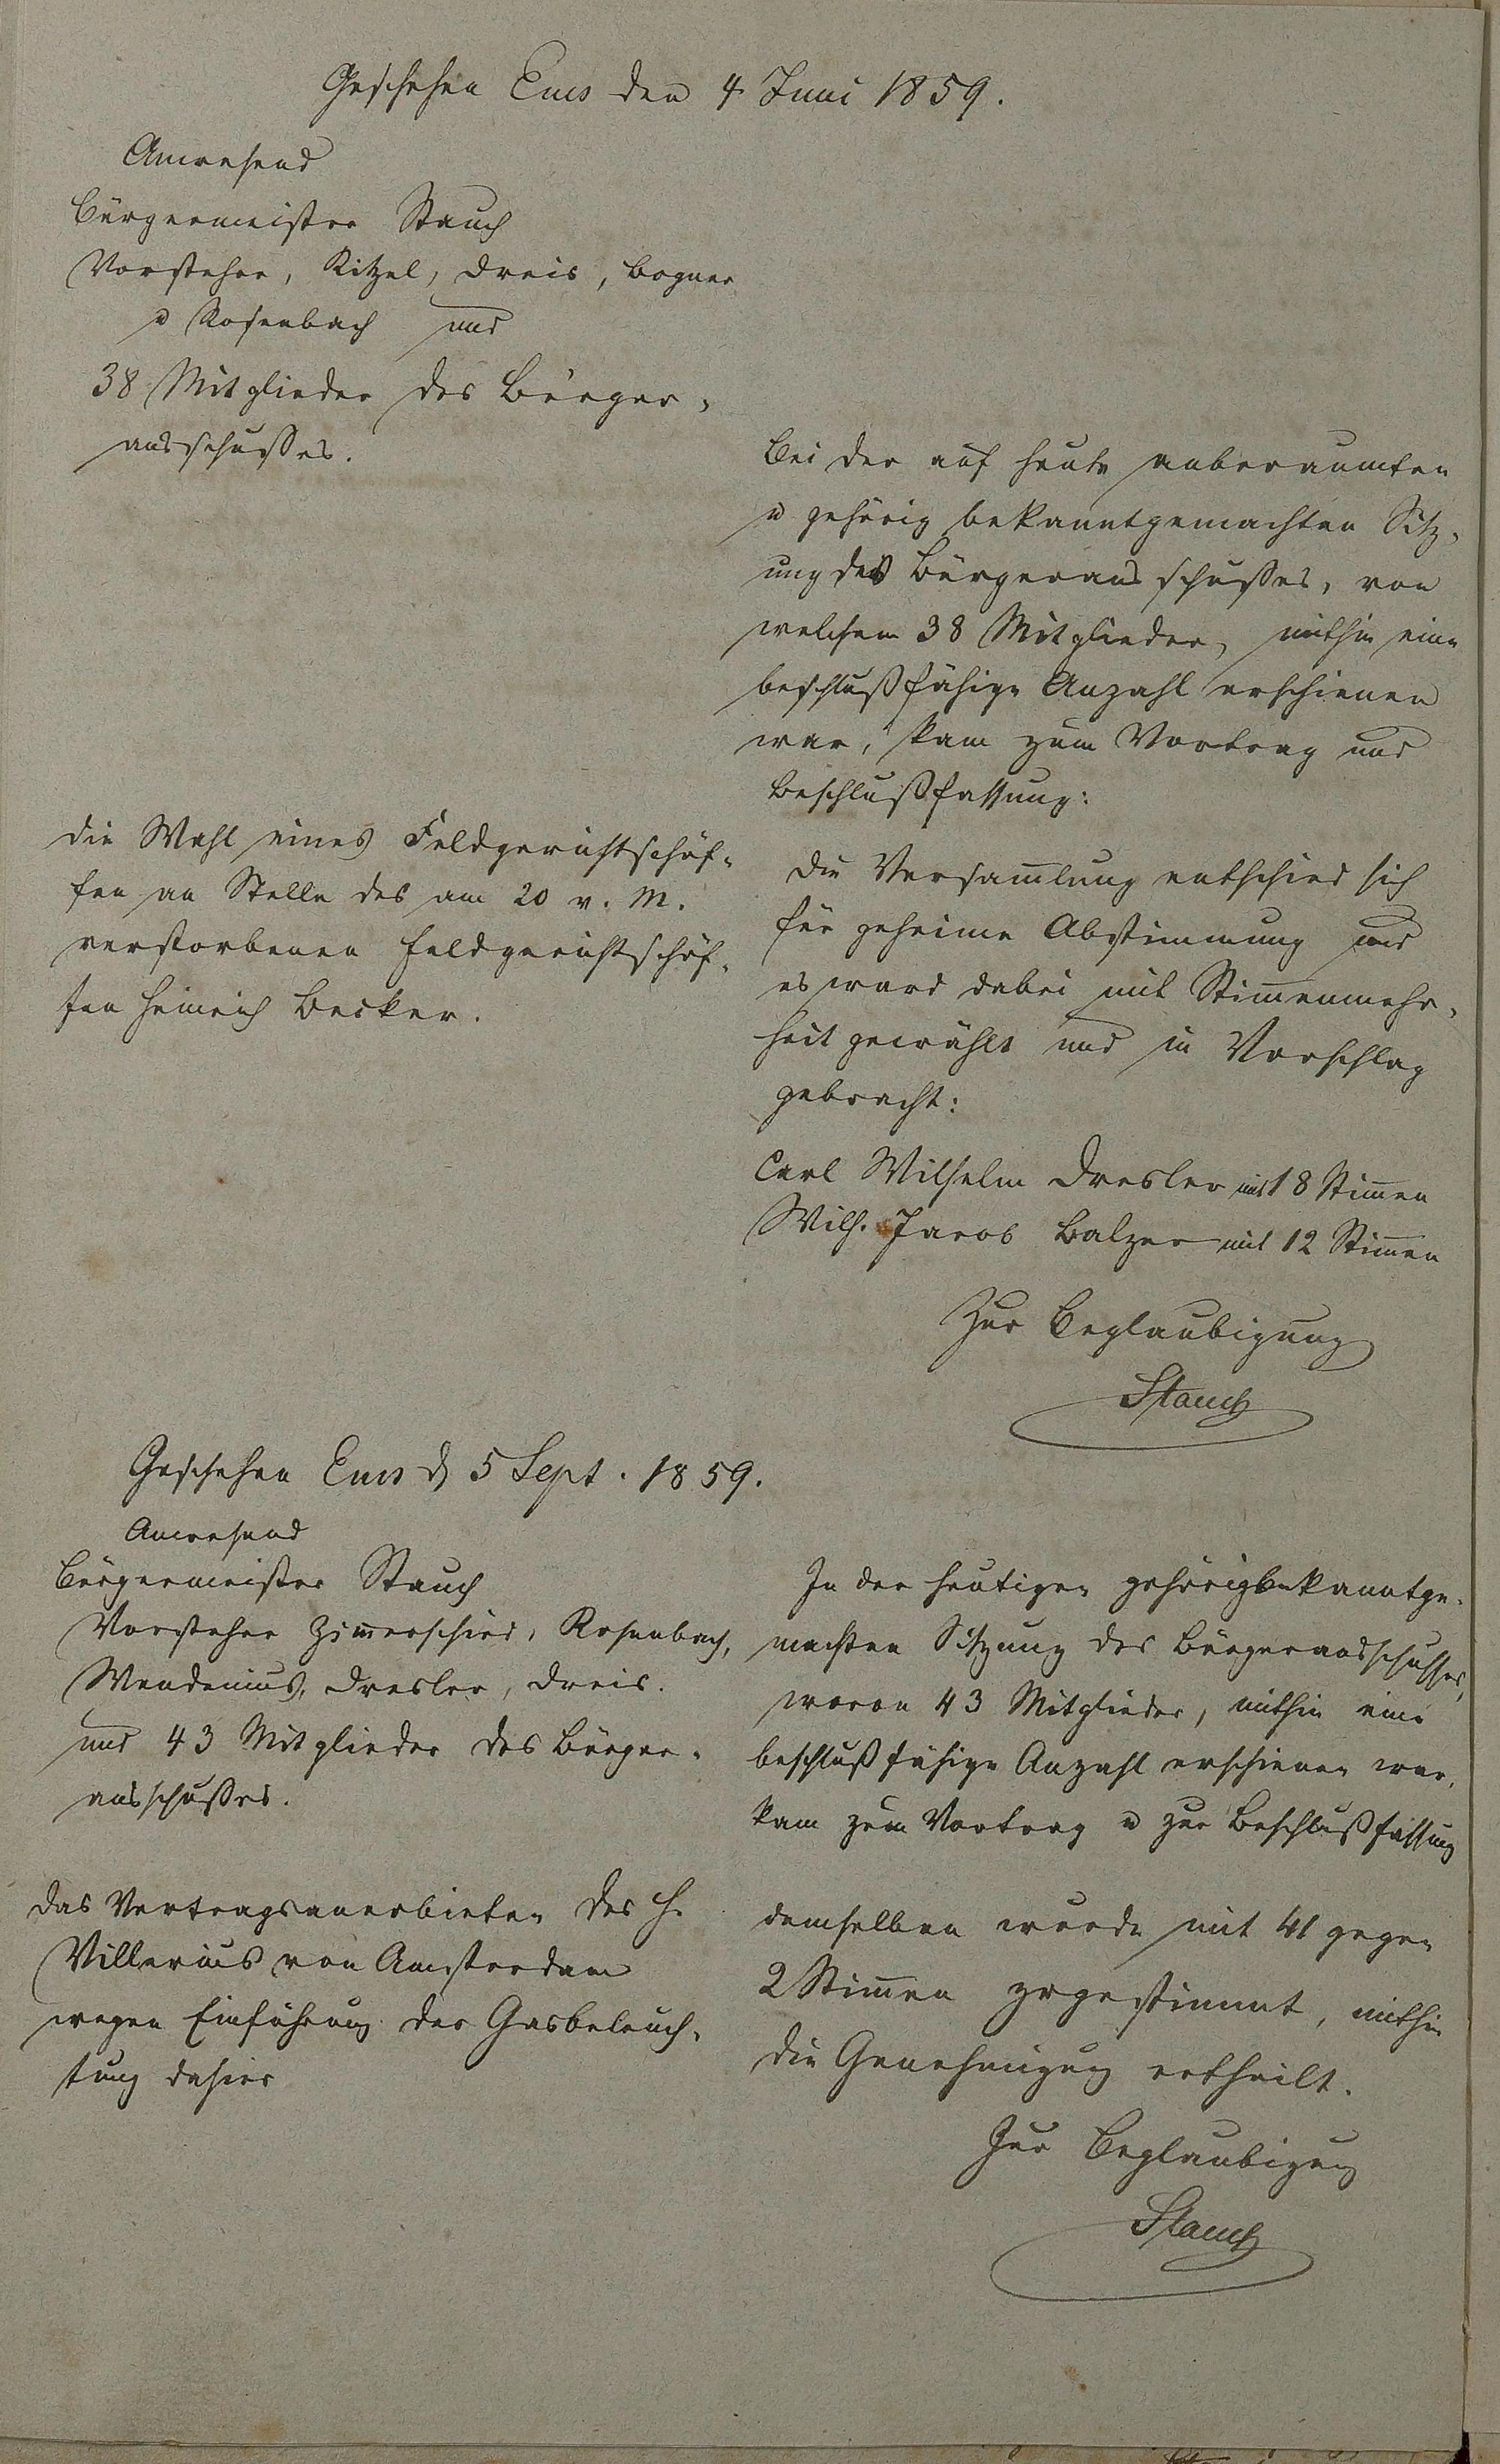 Geschehen Ems den 4 Juni 1859.
Anwesend
Bürgermeister Stauch
Vorsteher, Kitzel, Dreis, Bogner
u Rosenbach und
38 Mitglieder des Bürger-
ausschußes.
Bei der auf heute anberaumten
u gehörig bekanntgemachten Sitz-
ung des Bürgerausschußes, von
welchem 38 Mitglieder, mithin eine
beschlußfähige Anzahl erschienen
war, kam zum Vortrag und
Beschlußfassung:
die Wahl eines Feldgerichtschöf-
fen an Stelle des am 20 v. M.
verstorbenen Feldgerichtschöf-
fen Heinrich Becker.
Die Versam̅lung entschied sich
für geheime Abstimmung und
es ward dabei mit Stim̅enmehr-
heit gewählt und in Vorschlag
gebracht:
Carl Wilhelm Dresler mit 18 Stim̅en
Wilh. Jacob Balzer mit 12 Stim̅en
Zur Beglaubigung
Stauch
Geschehen Ems d 5 Sept. 1859.
Anwesend
Bürgermeister Stauch
Vorsteher Zim̅erschied, Rosenbach,
Wendenius, Dresler, Dreis.
und 43 Mitglieder des Bürger-
ausschußes.
In der heutigen gehörig bekanntge-
machten Sitzung des Bürgerausschusses,
wovon 43 Mitglieder, mithin eine
beschlußfähige Anzahl erschienen war,
kam zum Vortrag u zur Beschlußfassung
das Vertragsanerbieten des H.
Villerius von Amsterdam
wegen Einführung der Gasbeleuch-
tung dahier
demselben wurde mit 41 gegen
2 Stim̅en zugestimmt, mithin
die Genehmigung ertheilt.
Zur Beglaubigung
Stauch